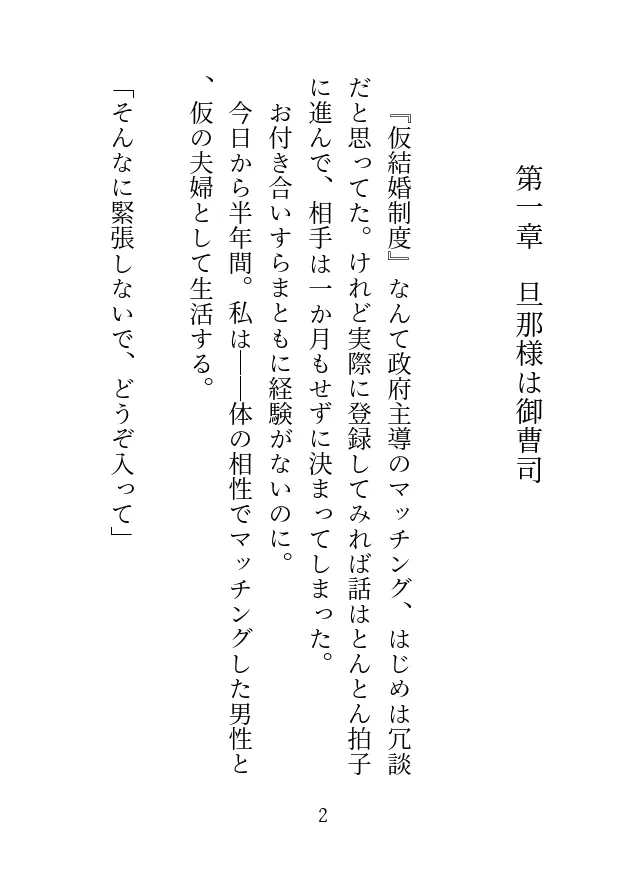 第一章　旦那様は御曹司
『仮結婚制度』なんて政府主導のマッチング、はじめは冗談
だと思ってた。けれど実際に登録してみれば話はとんとん拍子
に進んで、相手は一か月もせずに決まってしまった。
お付き合いすらまともに経験がないのに。
今日から半年間。私は――体の相性でマッチングした男性と
、仮の夫婦として生活する。
「そんなに緊張しないで、どうぞ入って」
2